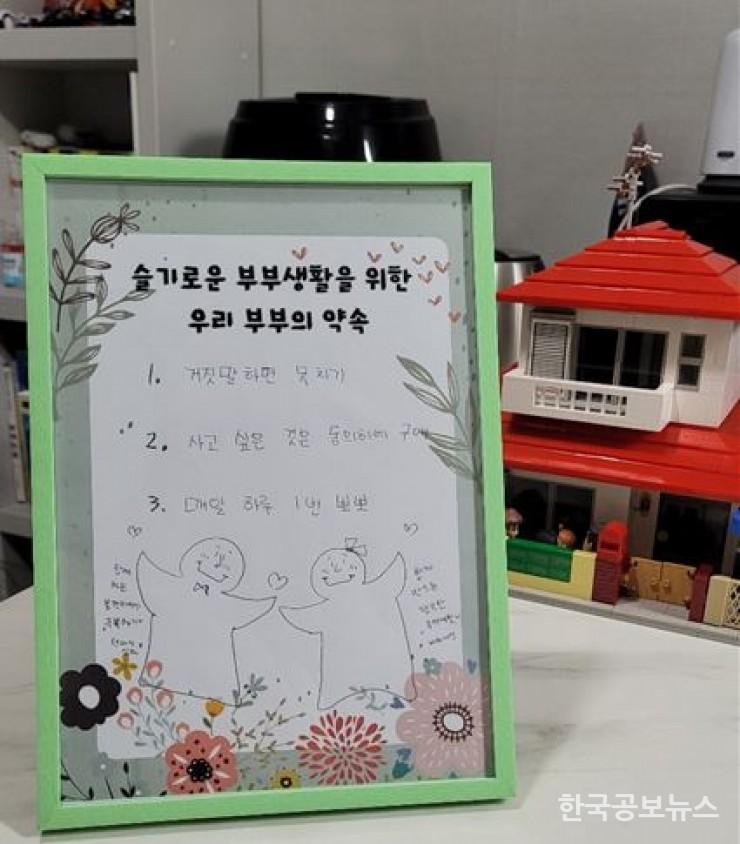 슬기로운 부부생활을 위한
우리 부부의 약속
1. 거짓말하면 못치기
2. 사고 싶은 것은 숨의하에 구매
3. 매일 하루 1번 뽀뽀
함께
한국공보뉴스